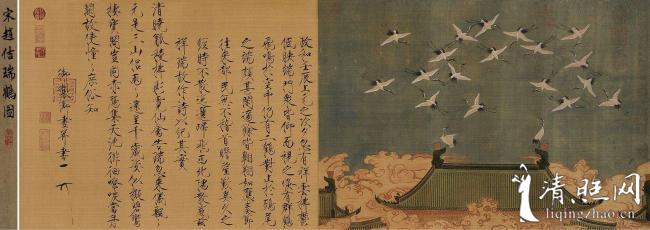 政和壬辰上元之次夕忽有祥雲拂鬱
低映端門眾皆仰而視之倏有群鶴
飛鳴於空中仍有二鶴對止於鴟尾
之端頗甚閑適餘皆翱翔如應奏節
往來都民無不稽首瞻望歎異久之
經時不散迤邐歸飛西北隅散感茲
祥瑞故作詩以紀其實
清曉觚稜拂彩霓仙禽告瑞忽來儀飄飄
元是三山侶兩兩還呈千歲姿似擬碧鸞
棲寶閣豈同赤雁集天池徘徊嘹唳當丹
闕故使憧憧庶俗知
御製御畫並書
宋趙佶瑞鶴圖
清旺网
liqingzhao.cn